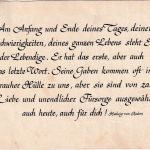 Am Anfang und Ende deines Tages, deiner
Schwierigkeiten, deines ganzen Lebens steht Er
der Lebendige. Er hat das erste, aber auch
das letzte Wort. Seine Gaben kommen oft in
rauher Hülle zu uns, aber sie sind von zar
Liebe und unendlicher Fürsorge ausgewähl
auch heute, auch für dich! Hedwig von Redern